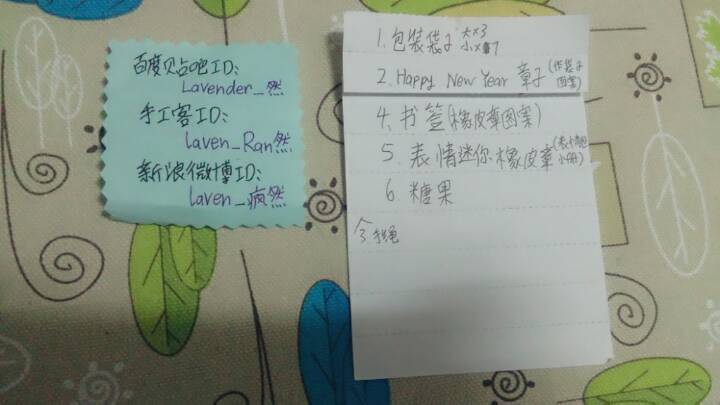 百度贴吧ID:
Lavender_然
手工客ID:
laven_Ran然
新浪微博ID:
laven_疯然
1. 包装袋子 大x3
小x7
2. Happy New Year 章子(作袋子
图案)
4. 书签(橡皮章图案)
5. 表情迷你橡皮章(表情包
小册)
6 糖果
3.